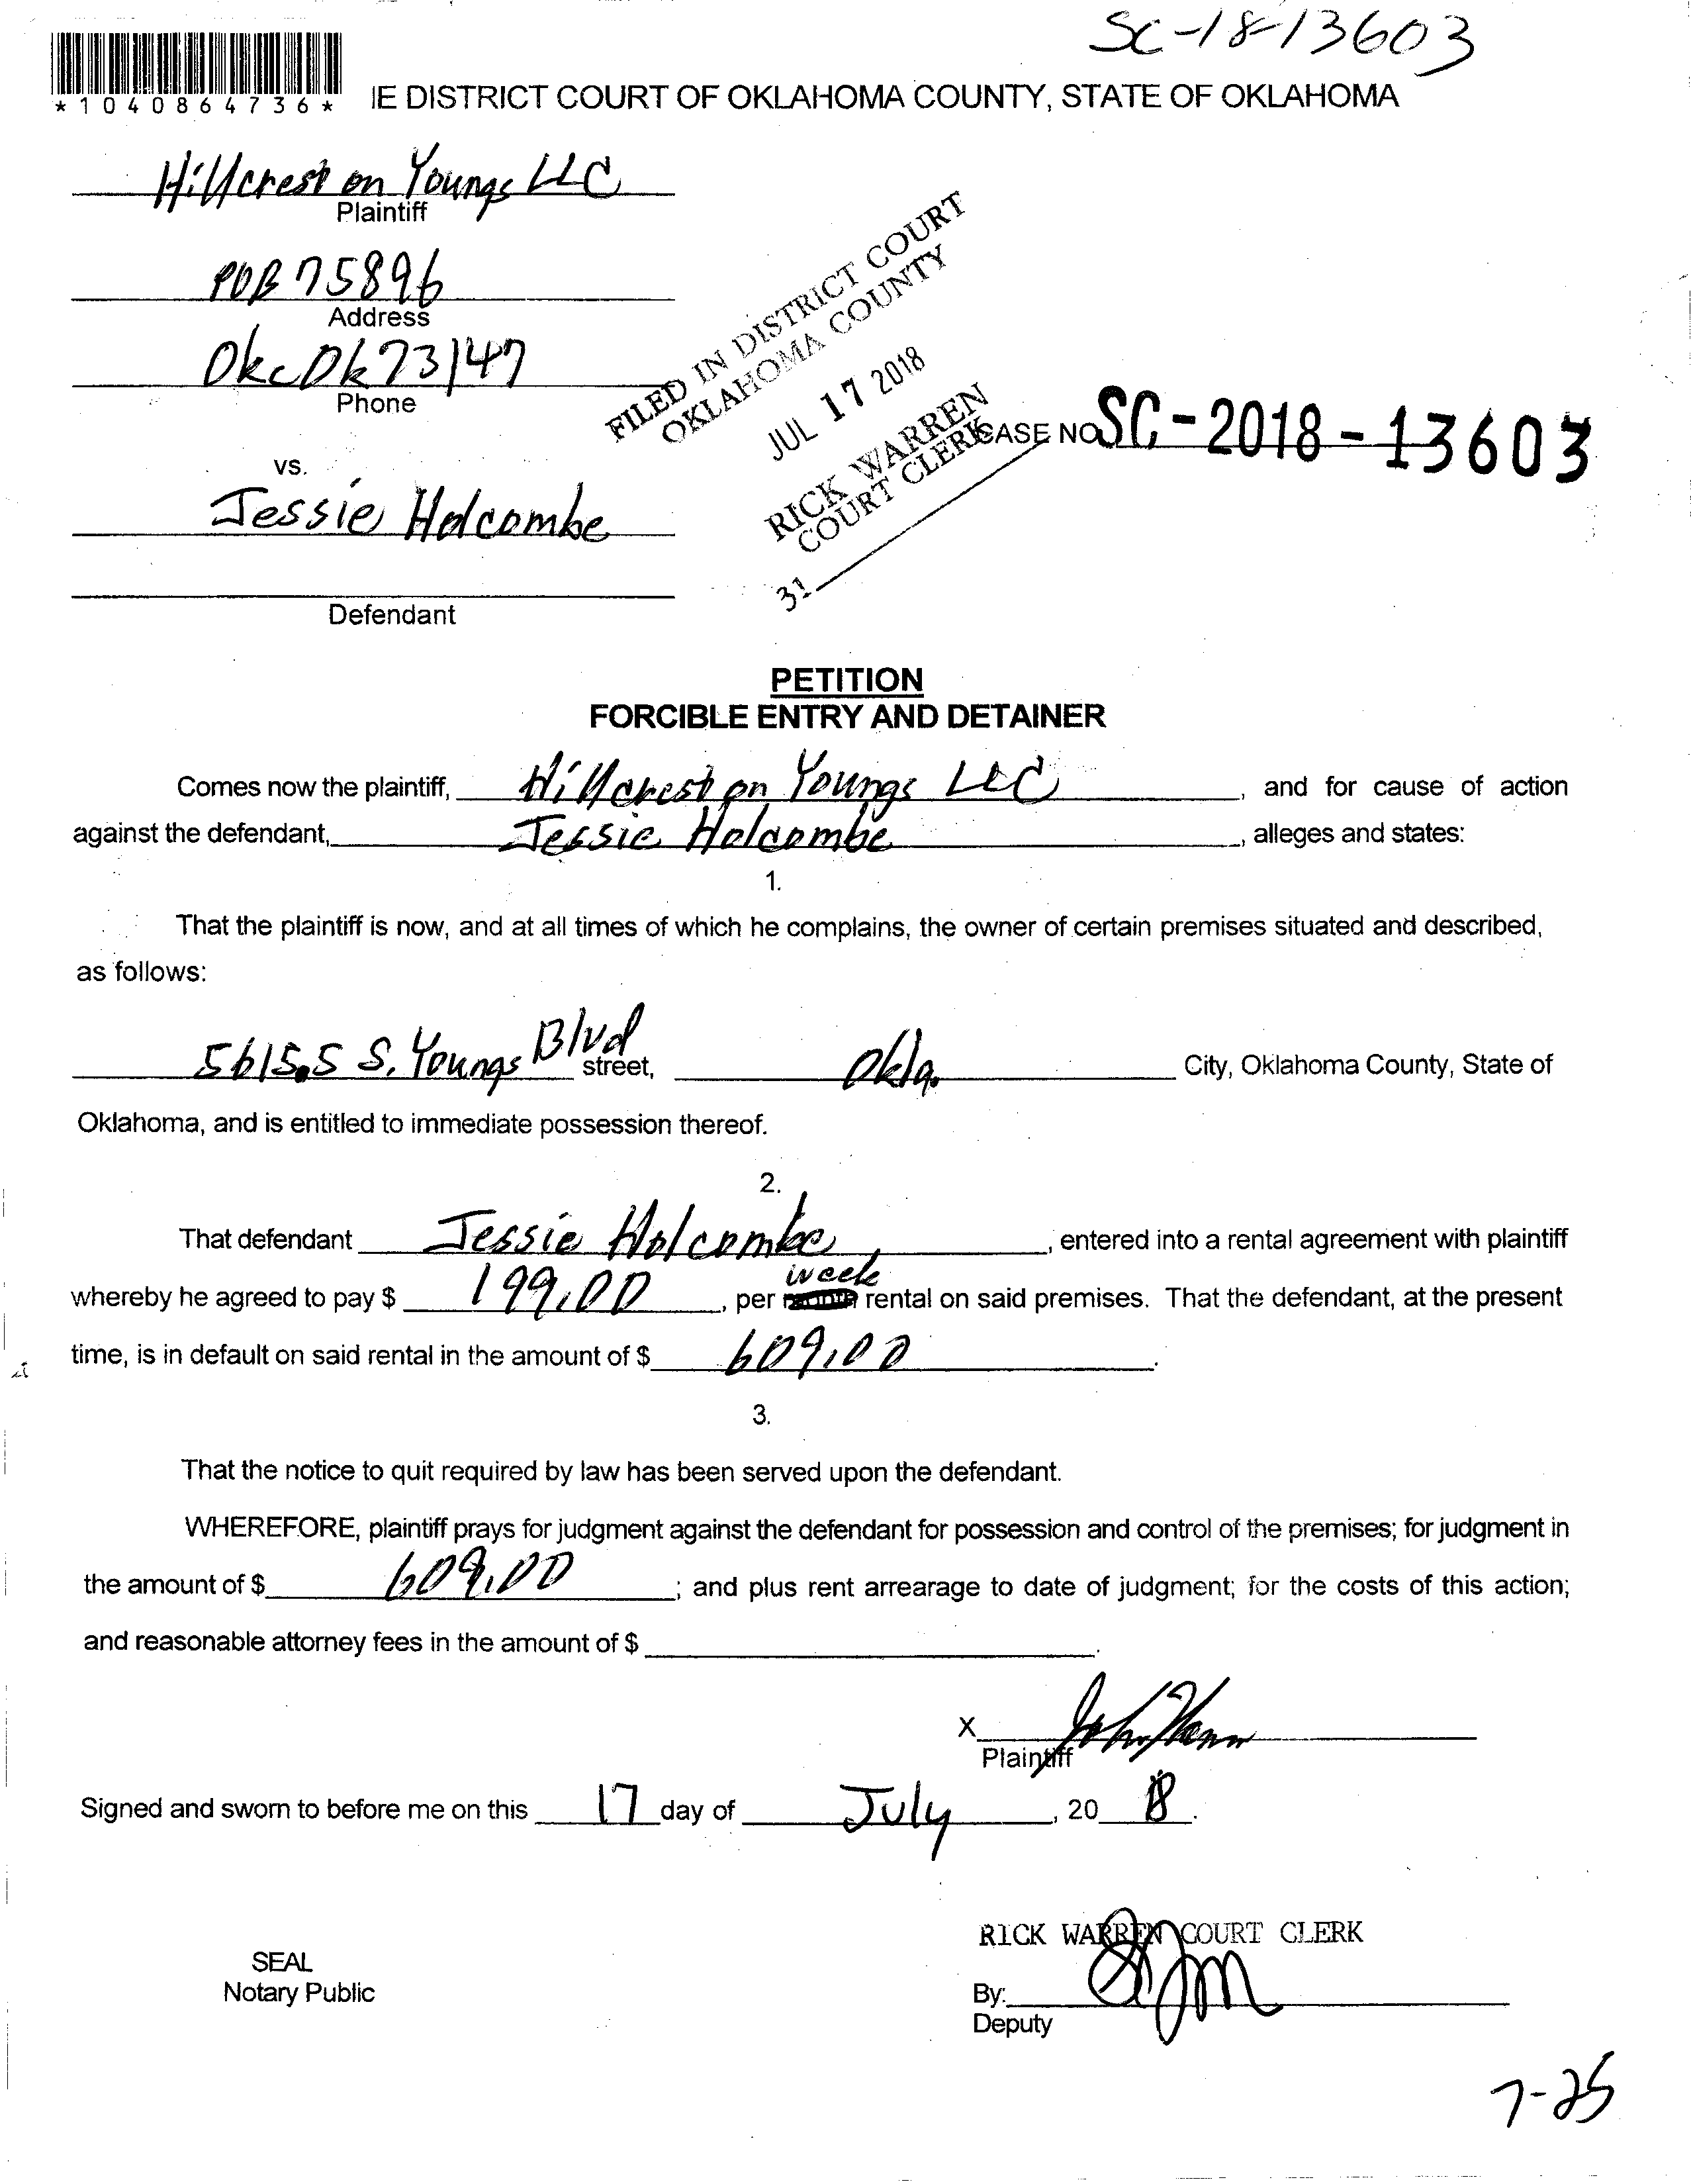 SC-18-13603
*1040864736*
IE DISTRICT COURT OF OKLAHOMA COUNTY, STATE OF OKLAHOMA
Hillcrest on Youngs LLC
Plaintiff
POB 75896
Address
Okc Ok 73147
Phone
FILED IN DISTRICT COURT
OKLAHOMA COUNTY
JUL 17 2018
RICK WARREN
COURT CLERK
31
CASE NO. SC-2018-13603
vs.
Jessie Holcombe
Defendant
PETITION
FORCIBLE ENTRY AND DETAINER
Comes now the plaintiff, Hillcrest on Youngs LLC, and for cause of action
against the defendant, Jessie Holcombe, alleges and states:
1.
That the plaintiff is now, and at all times of which he complains, the owner of certain premises situated and described,
as follows:
5615.5 S. Youngs Blvd street, Okla. City, Oklahoma County, State of
Oklahoma, and is entitled to immediate possession thereof.
2.
That defendant Jessie Holcombe, entered into a rental agreement with plaintiff
week
whereby he agreed to pay $ 199.00, per month rental on said premises. That the defendant, at the present
time, is in default on said rental in the amount of $ 609.00.
3.
That the notice to quit required by law has been served upon the defendant.
WHEREFORE, plaintiff prays for judgment against the defendant for possession and control of the premises; for judgment in
the amount of $ 609.00; and plus rent arrearage to date of judgment; for the costs of this action;
and reasonable attorney fees in the amount of $ .
X
Plaintiff
Signed and sworn to before me on this 17 day of July, 20 18.
RICK WARREN COURT CLERK
SEAL
Notary Public
By:
Deputy
7-25